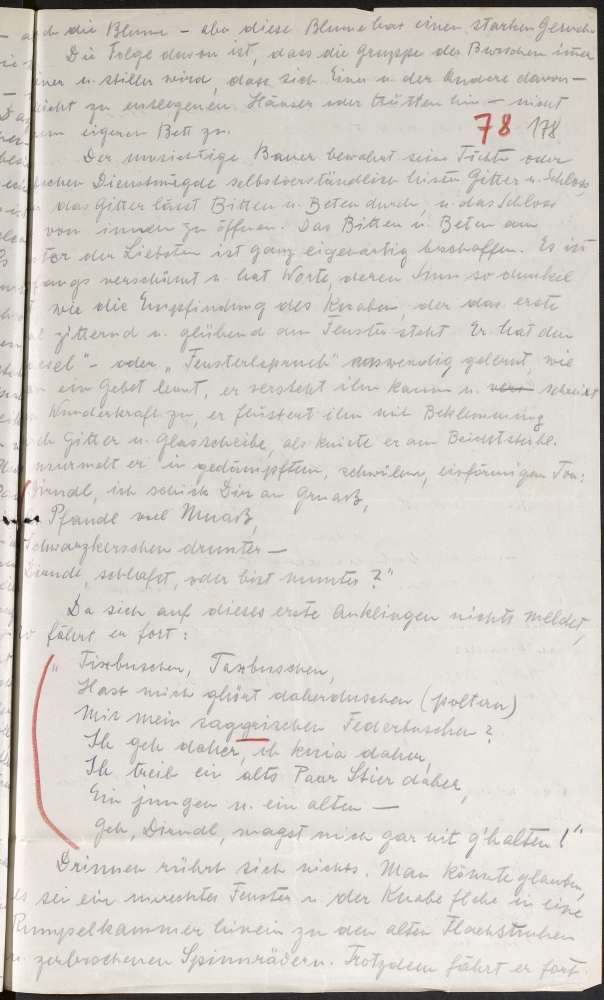 die Blume - aber diese Blume hat einen starken Geruch.
Die Folge davon ist, dass die Gruppe der Burschen immer
kleiner u. stiller wird, dass sich Einer u. der Andere davon-
zu entlegenen Häuser oder Hütten hin - nicht
eigenen Bett zu.
78 178
Der umsichtige Bauer bewahrt seine Töchter oder
Dienstmägde selbstverständlich hinter Gitter u. Schloss,
das Gitter lässt Bitten u. Beten durch u. das Schloss
von innen zu öffnen. Das Bitten u. Beten am
der Liebsten ist ganz eigenartig beschaffen. Es ist
anfangs verschämt u. hat Worte, deren Sinn so dunkel
wie die Empfindung des Knaben, der das erste
zitternd u. glühend am Fenster steht. Er hat den
- oder "Fensterlspruch" auswendig gelernt, wie
ein Gebet lernt, er versteht ihn kaum u. schreibt
Wunderkraft zu, er flüstert ihn mit Beklemmung
Gitter u. Glasscheibe, als kniete er am Beichtstuhl.
murmelt er in gedämpftem, schwülem, einförmigen Ton:
Dirndl, ich schick Dir an Gruass,
Pfandl voll Muass,
Schwarzkerschen drunter -
Dirndl, schlafst, oder bist munter?"
Da sich auf dieses erste Anklingen nichts meldet,
fährt er fort:
" Tixbuschen, Taxbuschen,
Hast mich ghört daherduschen (poltern)
Mit mein Federbuschen?
Ih geh daher, ih knia daher,
Ih treib ein alts Paar Stier daher,
Ein jungen u. ein alten -
Geh, Dirndl, magst mich gar nit g'halten!"
Drinnen rührt sich nichts. Man könnte glauben,
es sei ein unrechtes Fenster u. der Knabe flehe in eine
Rumpelkammer hinein zu den alten Flachstruhen
u. zerbrochenen Spinnrädern. Trotzdem fährt er fort: